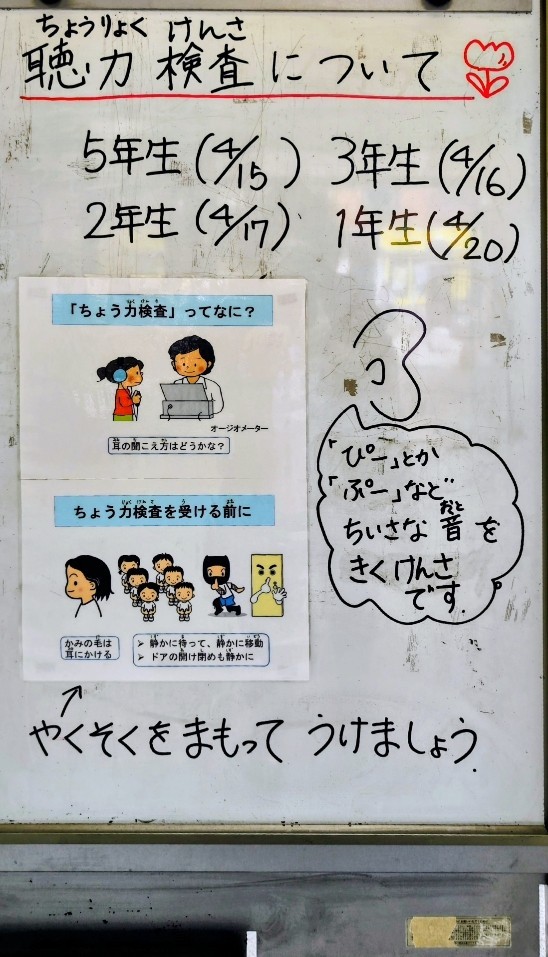 ちょうりょく けんさ
聴力 検査について
5年生(4/15) 3年生(4/16)
2年生(4/17) 1年生(4/20)
「ちょう力検査」ってなに?
オージオメーター
耳の聞こえ方はどうかな?
ちょう力検査を受ける前に
かみの毛は
耳にかける
➢ 静かに待って、静かに移動
➢ ドアの開け閉めも静かに
「ぴー」とか
「ぷー」など
ちいさな音を
きくけんさ
です。
やくそくをまもって うけましょう。